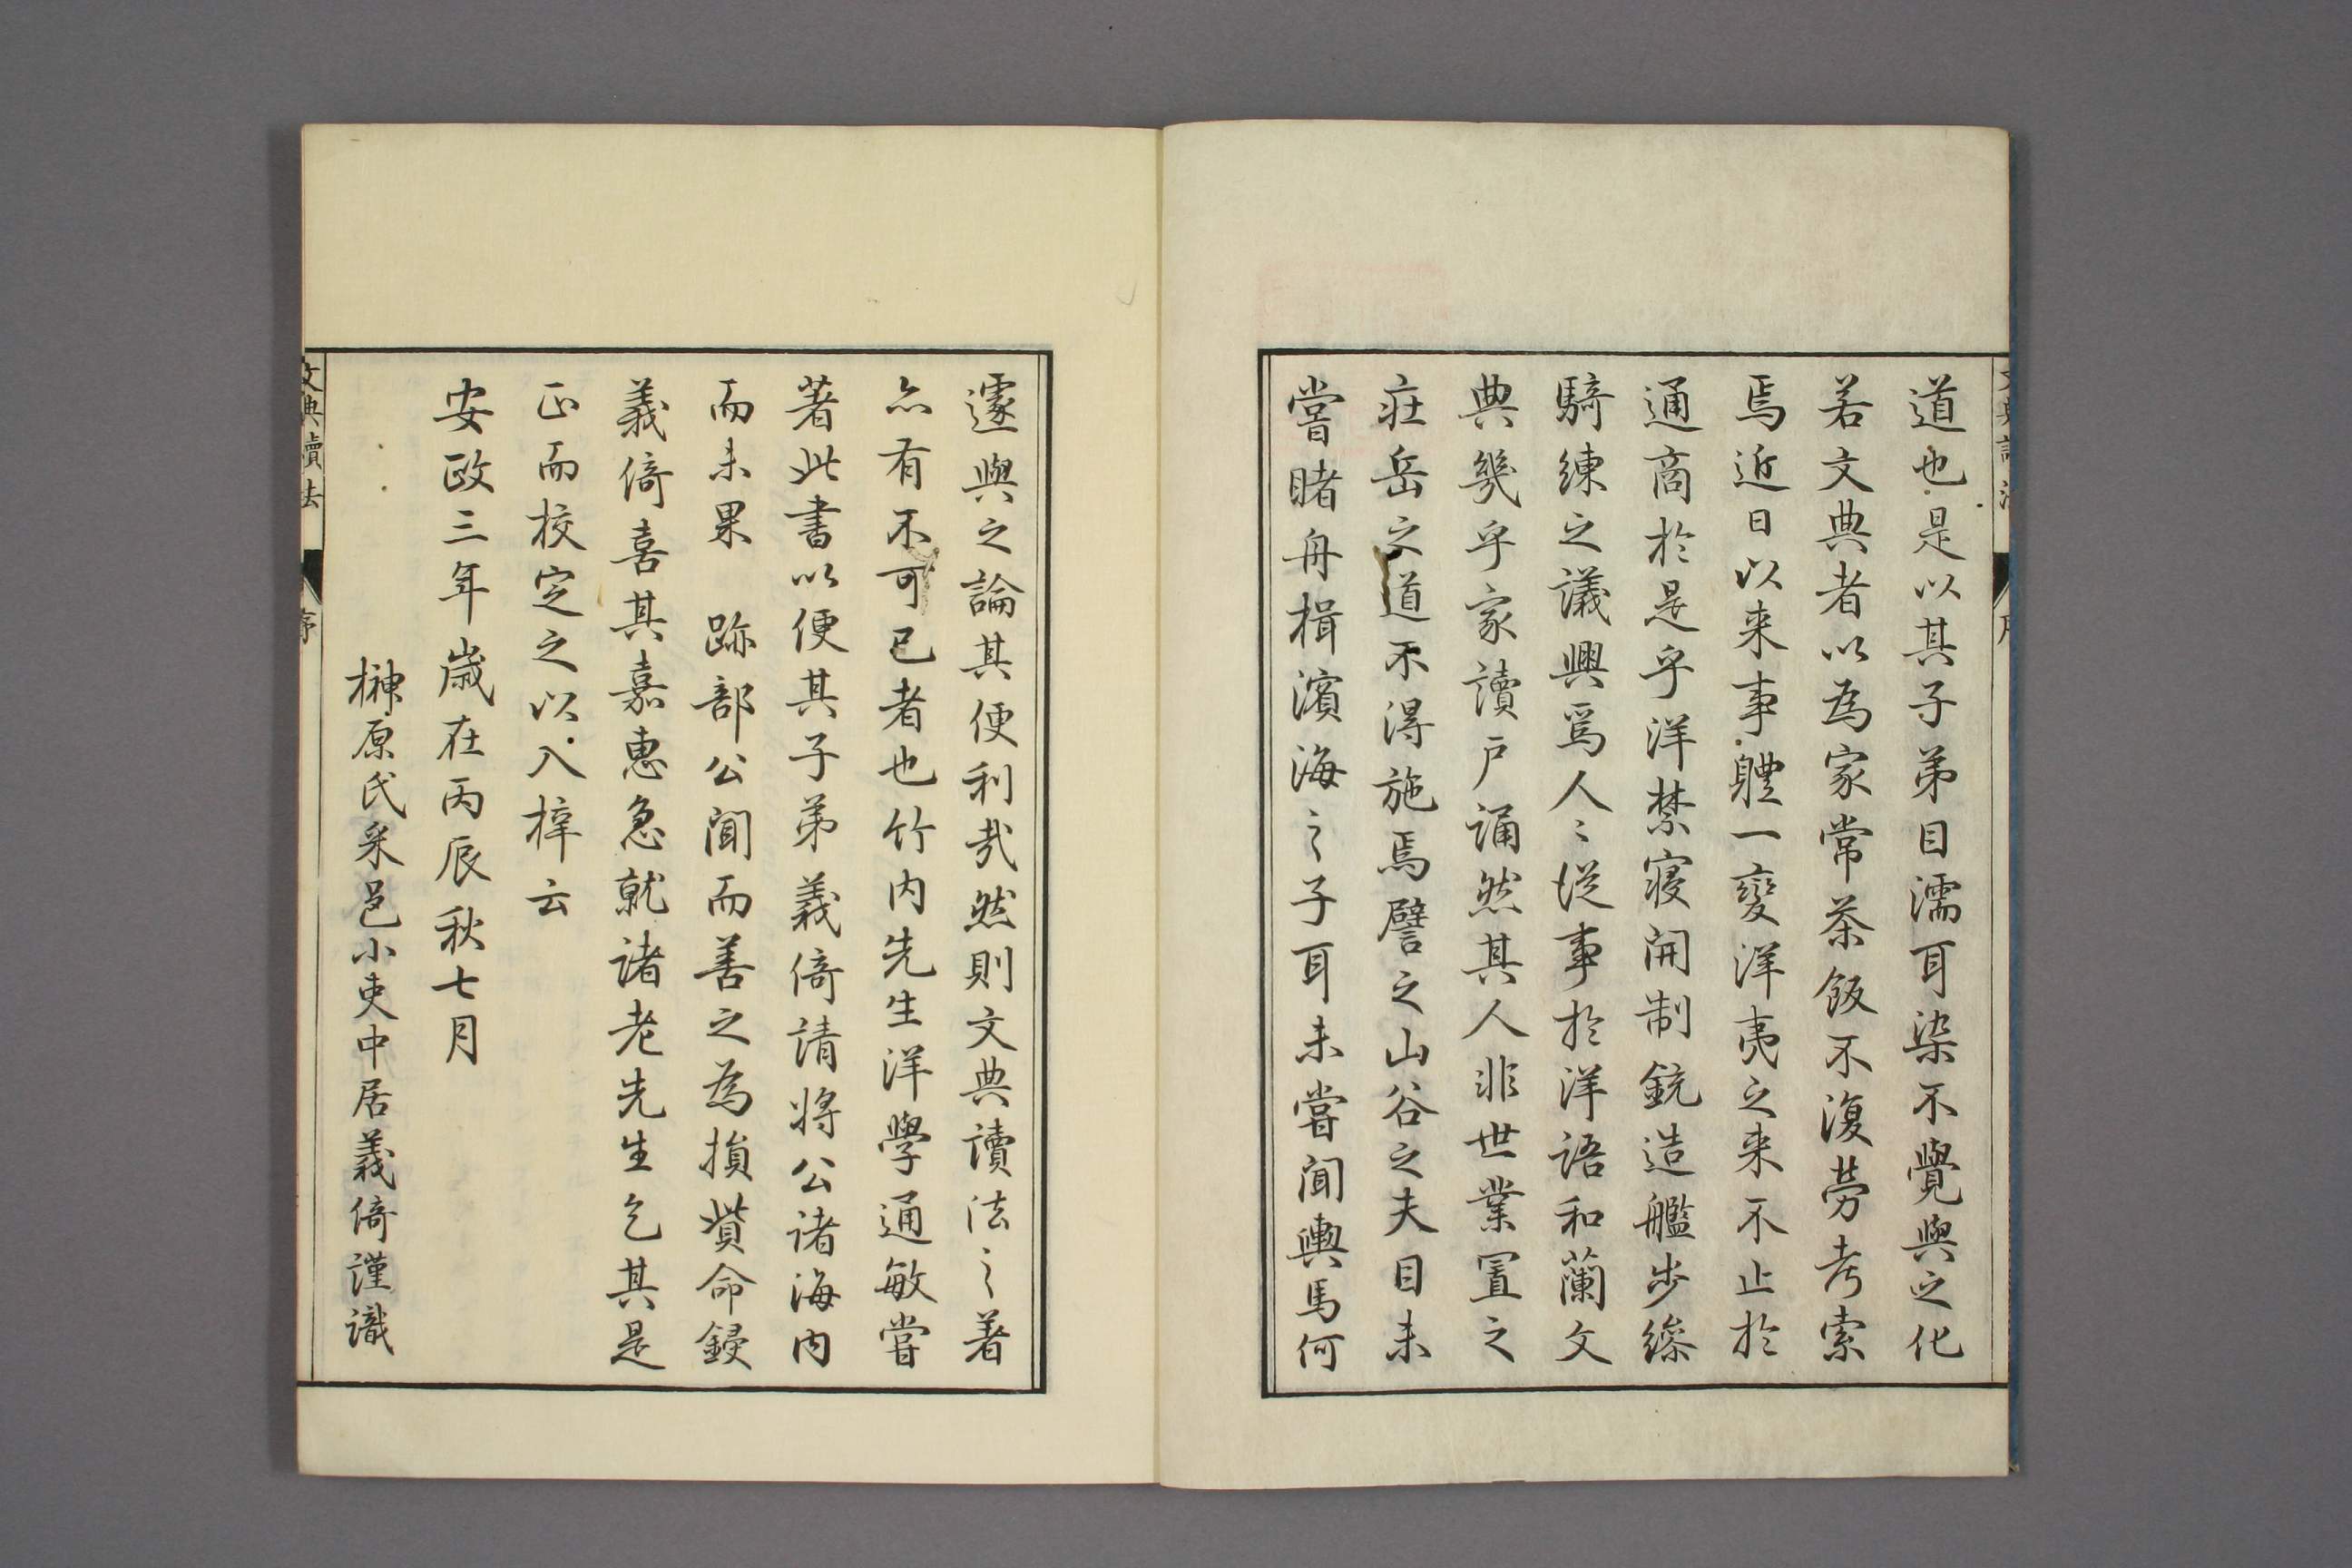 道也是以其子弟目濡耳染不覺與之化
若文典者以為家常茶飯不復勞考索
焉近日以来事軆一變洋夷之来不止於
通商於是乎洋禁寝開制銃造艦步操
騎練之議興焉人〻從事於洋語和蘭文
典幾乎家讀戸誦然其人非世業置之
莊岳之道不得施焉譬之山谷之夫目未
嘗睹舟楫濱海之子耳未嘗聞輿馬何
遽與之論其便利哉然則文典讀法之著
亦有不可已者也竹内先生洋學通敏嘗
著此書以便其子弟義倚請將公諸海内
而未果　跡部公聞而善之為損貲命鋟
義倚喜其嘉惠急就諸老先生乞其是
正而校定之以入梓云
安政三年歳在丙辰秋七月
榊原氏采邑小吏中居義倚謹識
文典讀法
序